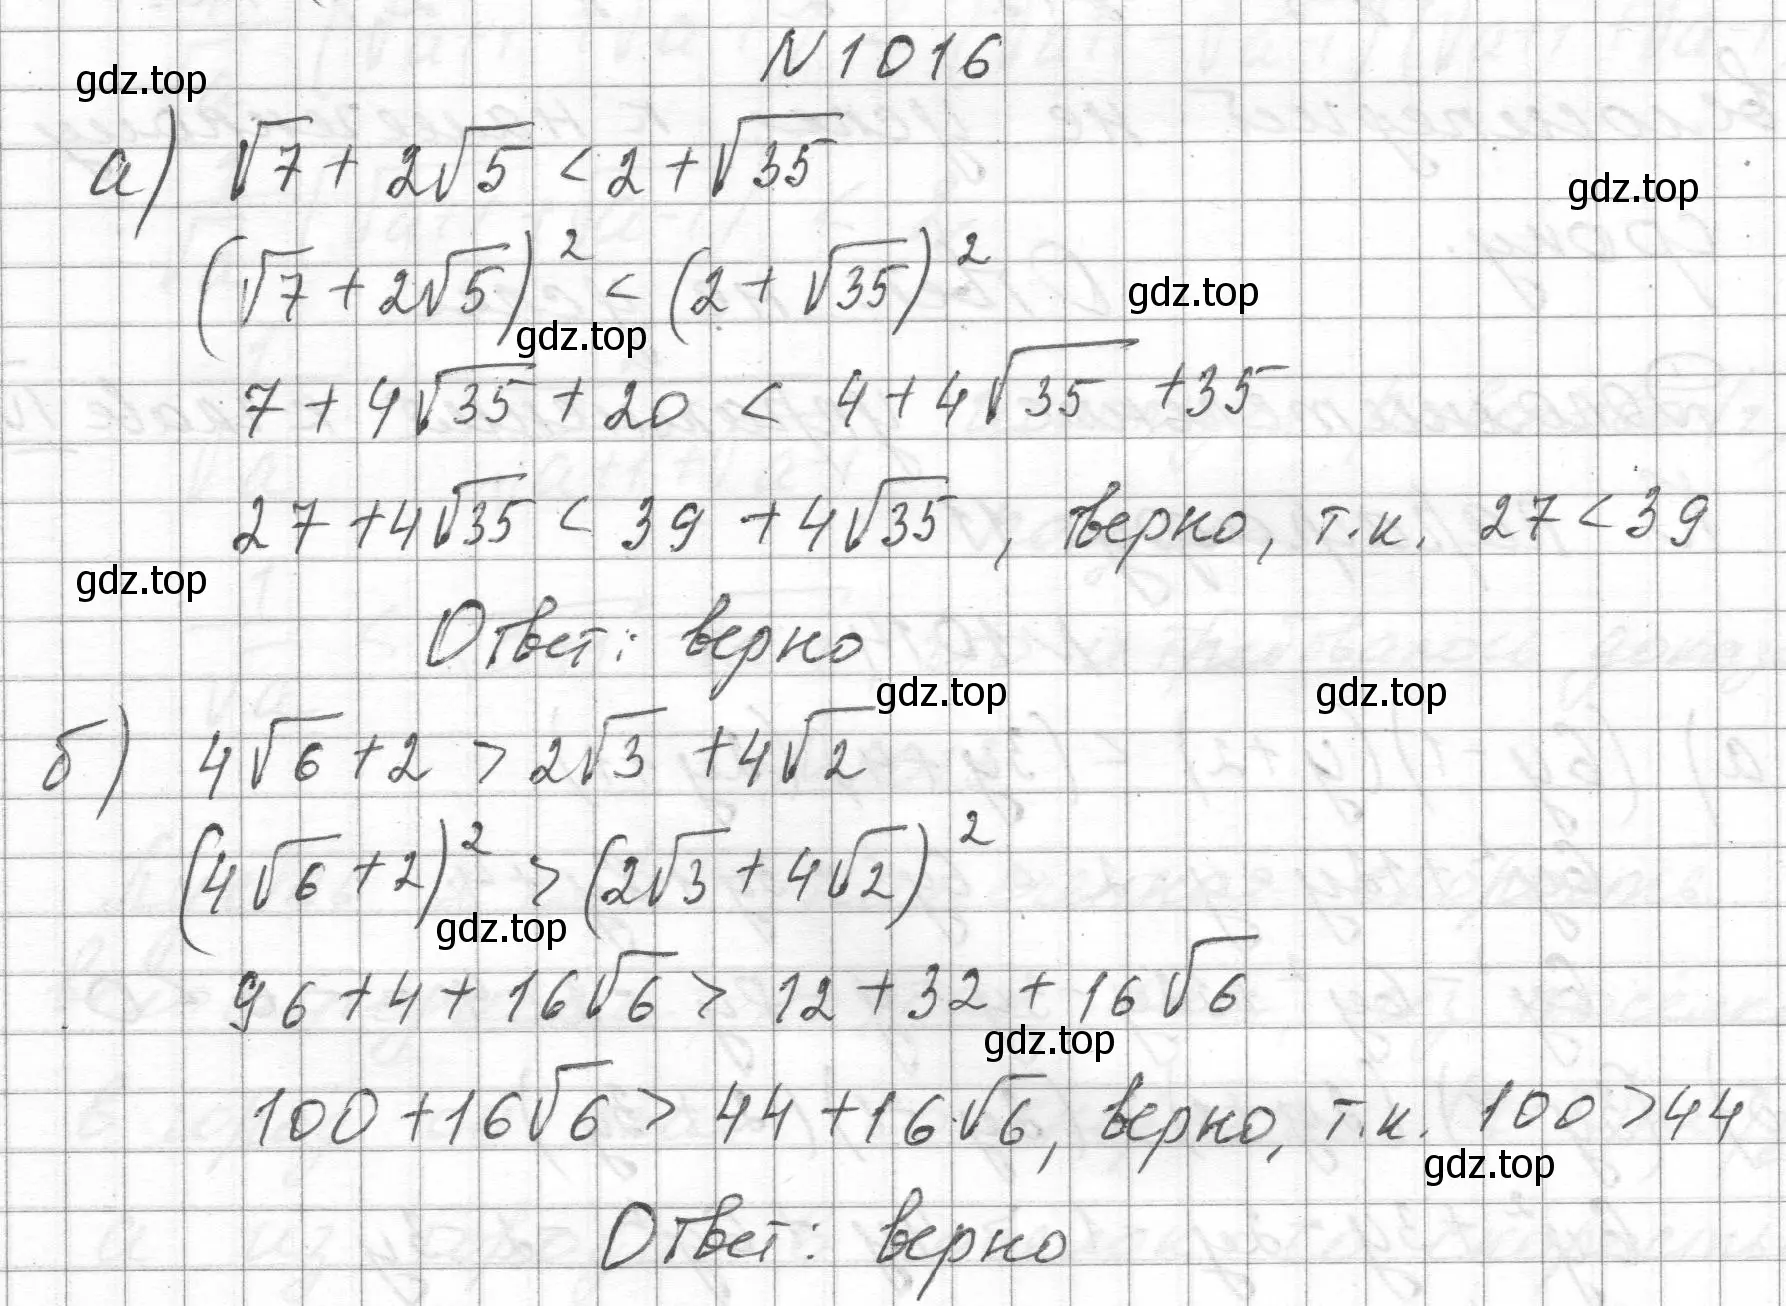 N 1016
gdz.top
а) √7 + 2√5 < 2 + √35
gdz.top
(√7 + 2√5)² < (2 + √35)²
gdz.top
gdz.top
7 + 4√35 + 20 < 4 + 4√35 + 35
27 + 4√35 < 39 + 4√35, верно, т.к. 27 < 39
gdz.top
Ответ: верно
gdz.top gdz.top
б) 4√6 + 2 > 2√3 + 4√2
(4√6 + 2)² > (2√3 + 4√2)²
gdz.top
96 + 4 + 16√6 > 12 + 32 + 16√6
gdz.top
100 + 16√6 > 44 + 16√6, верно, т.к. 100 > 44
gdz.top
Ответ: верно